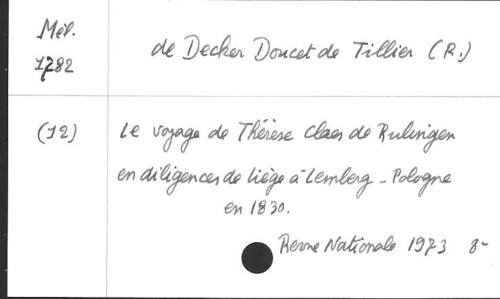 Mél.
1782
de Decker Doucet de Tillier (R.)
(12)
Le voyage de Thérèse Claes de Rulingen
en diligences de Liège à Lemberg - Pologne
en 1830.
Revue Nationale 1973 8°